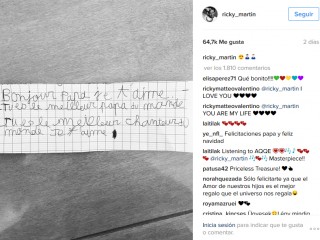 Bonjour Papa je t'aime...
tu es le meilleur papa du monde
tu es le meilleur chanteur
monde Je t'aime
ricky_martin
Seguir
64,7k Me gusta
2 días
ricky_martin
ver los 1.810 comentarios
elisaperez71 Qué bonito!!!
rickymatteovalentino @ricky_martin I
LOVE YOU ♥♥♥♥
rickymatteovalentino @ricky_martin
YOU ARE MY LIFE ♥♥♥♥
laitilak
ye_nfl_ Felicitaciones papa y feliz
navidad
laitilak Listening to AQQE
@ricky_martin Masterpiece!!
patusa42 Priceless Treasure! ♥
norahquezada Sólo felicitarte ya que el
Amor de nuestros hijos es el mejor
regalo que el universo nos regala
royamazruei ♥♥♥
Inicia sesión para indicar que te gusta
o comentar.